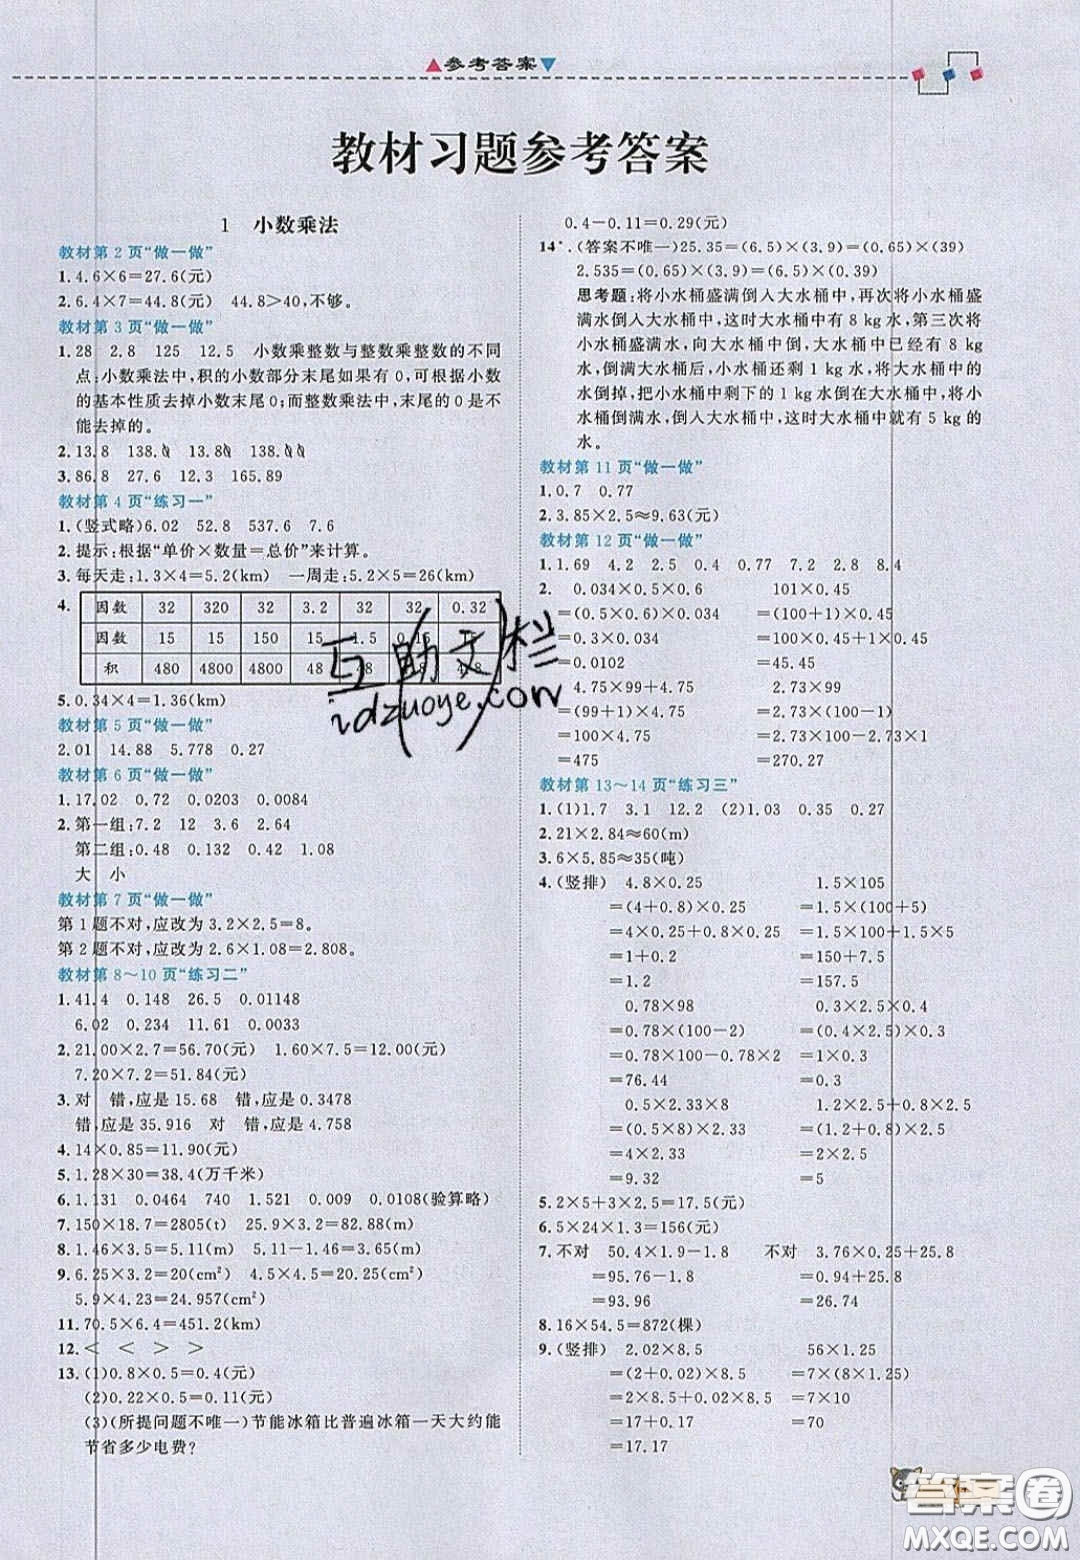 参考答案
教材习题参考答案
1 小数乘法
教材第 2 页“做一做”
1.4.6×6=27.6(元)
2.6.4×7=44.8(元) 44.8>40,不够。
教材第 3 页“做一做”
1.28 2.8 125 12.5 小数乘整数与整数乘整数的不同
点:小数乘法中,积的小数部分末尾如果有 0,可根据小数
的基本性质去掉小数末尾0;而整数乘法中,末尾的 0 是不
能去掉的。
2.13.8 138.0 13.80 138.00
3.86.8 27.6 12.3 165.89
教材第 4 页“练习一”
1.(竖式略)6.02 52.8 537.6 7.6
2.提示:根据“单价×数量=总价”来计算。
3.每天走:1.3×4=5.2(km) 一周走:5.2×5=26(km)
4.
因数 32 320 32 3.2 32 32 0.32
因数 15 15 150 15 1.5 0.15
积 480 4800 4800 48 48
5.0.34×4=1.36(km)
教材第 5 页“做一做”
2.01 14.88 5.778 0.27
教材第 6 页“做一做”
1.17.02 0.72 0.0203 0.0084
2.第一组:7.2 12 3.6 2.64
第二组:0.48 0.132 0.42 1.08
大 小
教材第 7 页“做一做”
第 1题不对,应改为 3.2×2.5=8。
第 2题不对,应改为 2.6×1.08=2.808。
教材第 8~10 页“练习二”
1.41.4 0.148 26.5 0.01148
6.02 0.234 11.61 0.0033
2.21.00×2.7=56.70(元) 1.60×7.5=12.00(元)
7.20×7.2=51.84(元)
3.对 错,应是 15.68 错,应是 0.3478
错,应是 35.916 对 错,应是 4.758
4.14×0.85=11.90(元)
5.1.28×30=38.4(万千米)
6.1.131 0.0464 740 1.521 0.009 0.0108(验算略)
7.150×18.7=2805(t) 25.9×3.2=82.88(m)
8.1.46×3.5=5.11(m) 5.11-1.46=3.65(m)
9.6.25×3.2=20(cm²) 4.5×4.5=20.25(cm²)
5.9×4.23=24.957(cm²)
11.70.5×6.4=451.2(km)
12.< < > >
13.(1)0.8×0.5=0.4(元)
(2)0.22×0.5=0.11(元)
(3)(所提问题不唯一)节能冰箱比普遍冰箱一天大约能
节省多少电费?
0.4-0.11=0.29(元)
14*.(答案不唯一)25.35=(6.5)×(3.9)=(0.65)×(39)
2.535=(0.65)×(3.9)=(6.5)×(0.39)
思考题:将小水桶盛满倒入大水桶中,再次将小水桶盛
满水倒入大水桶中,这时大水桶中有 8 kg水,第三次将
小水桶盛满水,向大水桶中倒,大水桶中已经有 8 kg
水,倒满大水桶后,小水桶还剩 1 kg水,将大水桶中的水
倒掉,把小水桶中剩下的 1 kg水倒在大水桶中,将小
水桶倒满水,倒入大水桶中,这时大水桶中就有 5 kg的
水。
教材第 11 页“做一做”
1.0.7 0.77
2.3.85×2.5≈9.63(元)
教材第 12 页“做一做”
1.1.69 4.2 2.5 0.4 0.77 7.2 2.8 8.4
2. 0.034×0.5×0.6 101×0.45
=(0.5×0.6)×0.034 =(100+1)×0.45
=0.3×0.034 =100×0.45+1×0.45
=0.0102 =45.45
4.75×99+4.75 2.73×99
=(99+1)×4.75 =2.73×(100-1)
=100×4.75 =2.73×100-2.73×1
=475 =270.27
教材第 13~14 页“练习三”
1.(1)1.7 3.1 12.2 (2)1.03 0.35 0.27
2.21×2.84≈60(m)
3.6×5.85≈35(吨)
4.(竖排) 4.8×0.25 1.5×105
=(4+0.8)×0.25 =1.5×(100+5)
=4×0.25+0.8×0.25 =1.5×100+1.5×5
=1+0.2 =150+7.5
=1.2 =157.5
0.78×98 0.5×0.3×0.4
=0.78×(100-2) =(0.4×2.5)×0.3
=0.78×100-0.78×2 =1×0.3
=76.44 =0.3
0.5×2.33×8 1.2×2.5+0.8×2.5
=(0.5×8)×2.33 =(1.2+0.8)×2.5
=4×2.33 =2×2.5
=9.32 =5
5.2×5+3×2.5=17.5(元)
6.5×24×1.3=156(元)
7.不对 50.4×1.9-1.8 不对 3.76×0.25+25.8
=95.76-1.8 =0.94+25.8
=93.96 =26.74
8.16×54.5=872(棵)
9.(竖排) 2.02×8.5 56×1.25
=(2+0.02)×8.5 =7×(8×1.25)
=2×8.5+0.02×8.5 =7×10
=17+0.17 =70
=17.17
互助文栏
idzuoye.com
答案圈
MXQE.COM